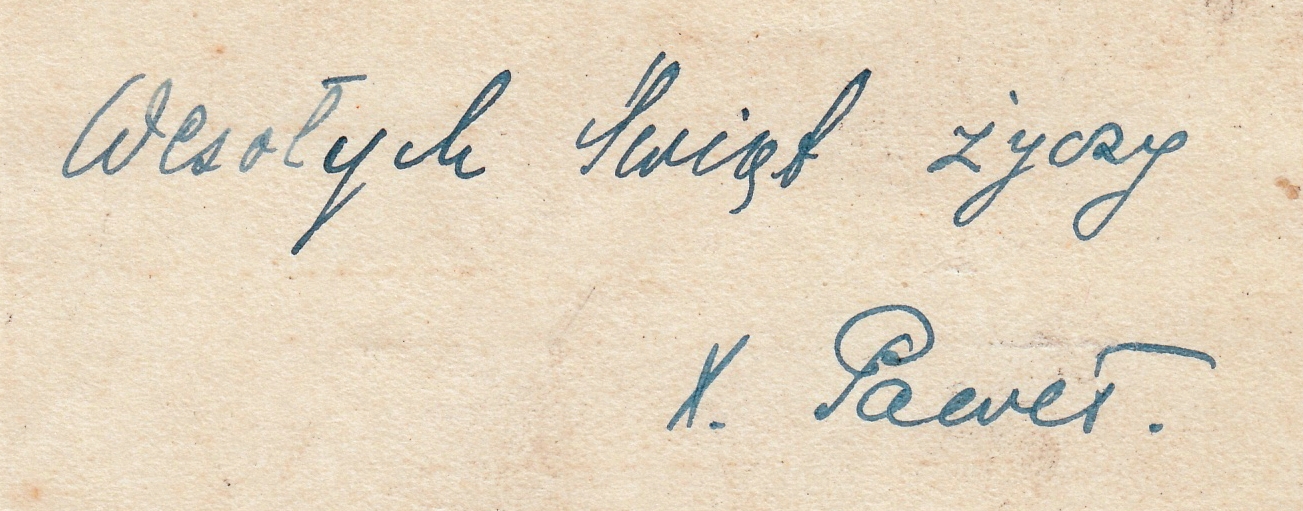 Wesołych Świąt życzy
X. Paweł.